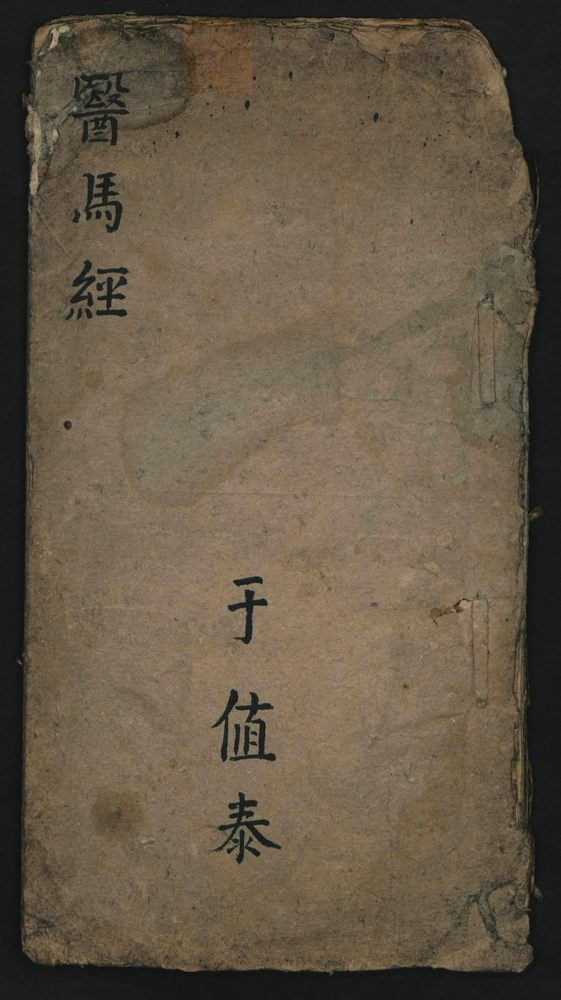 醫馬經
于值泰